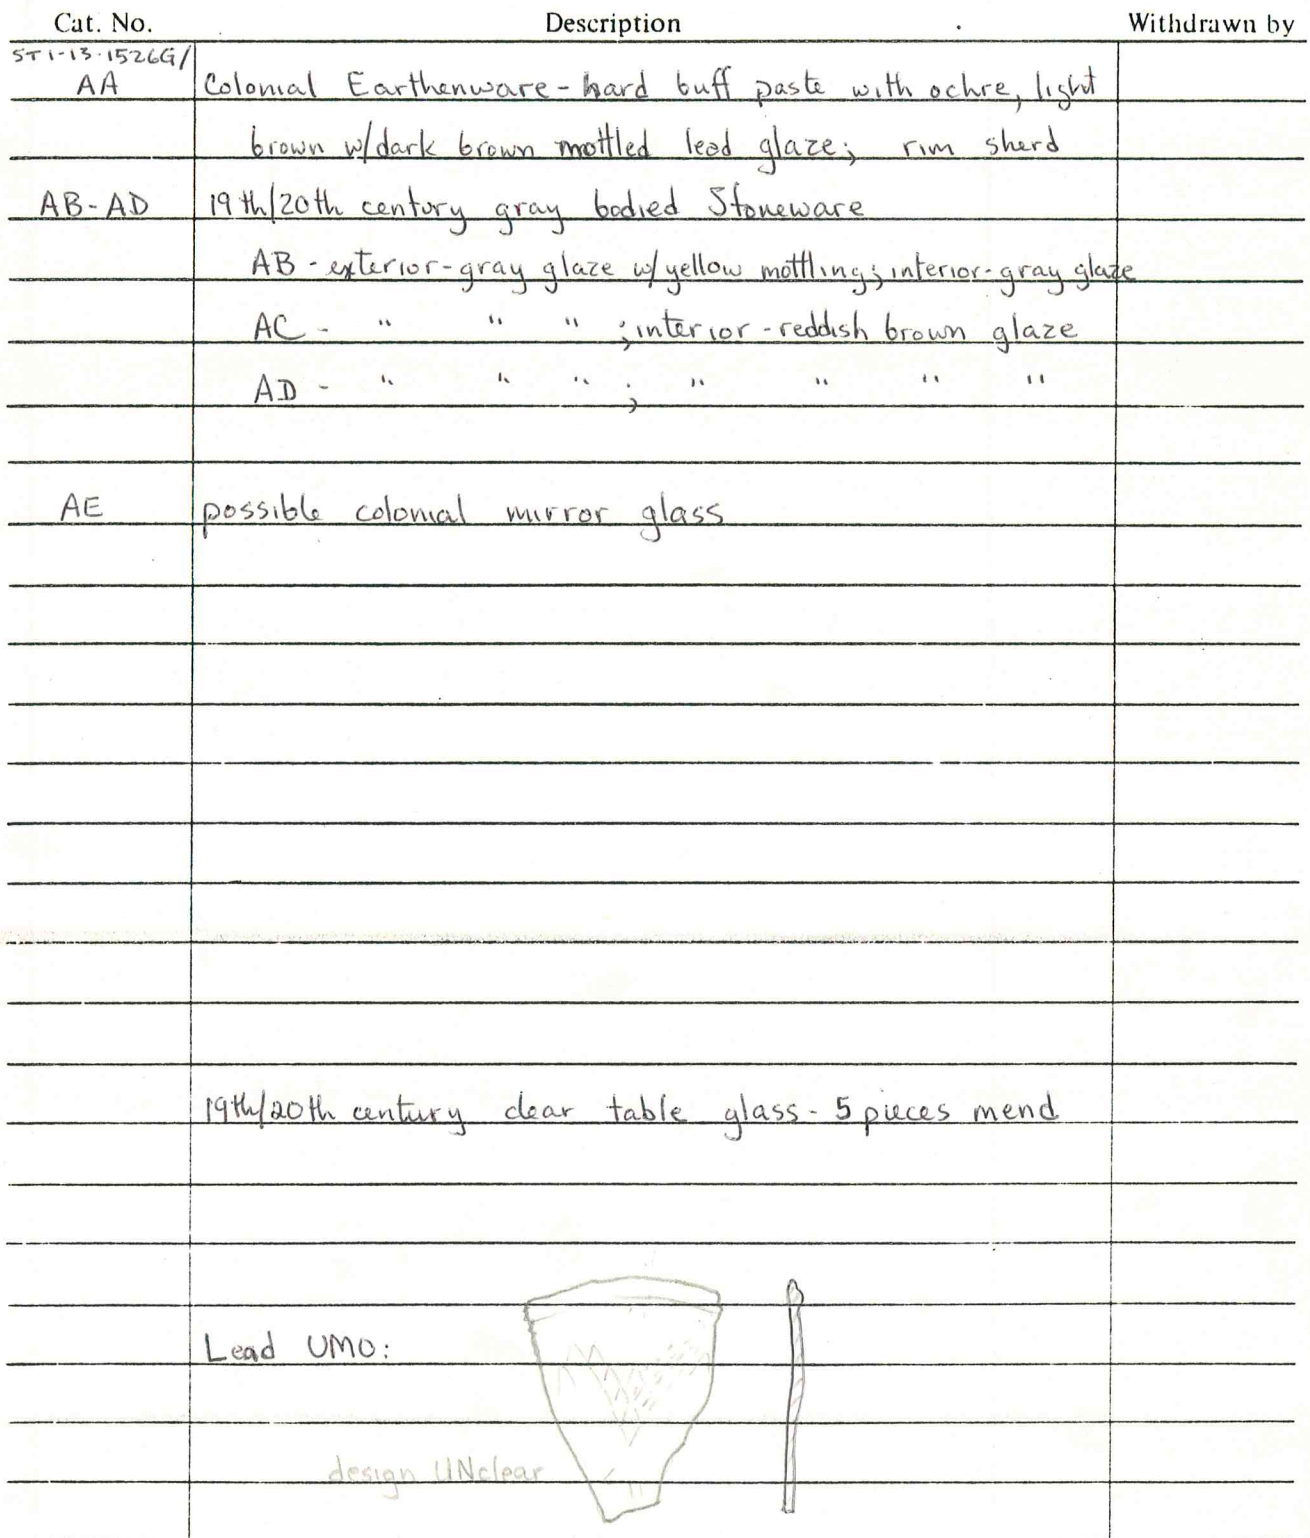 Cat. No. Description Withdrawn by
ST1-13-1526G/
AA Colonial Earthenware - hard buff paste with ochre, light
brown w/dark brown mottled lead glaze; rim sherd
AB-AD 19th/20th century gray bodied Stoneware
AB - exterior-gray glaze w/yellow mottling; interior-gray glaze
AC - " " " ; interior-reddish brown glaze
AD - " " " ; " " " "
AE possible colonial mirror glass
19th/20th century clear table glass - 5 pieces mend
Lead UMO:
design UNclear